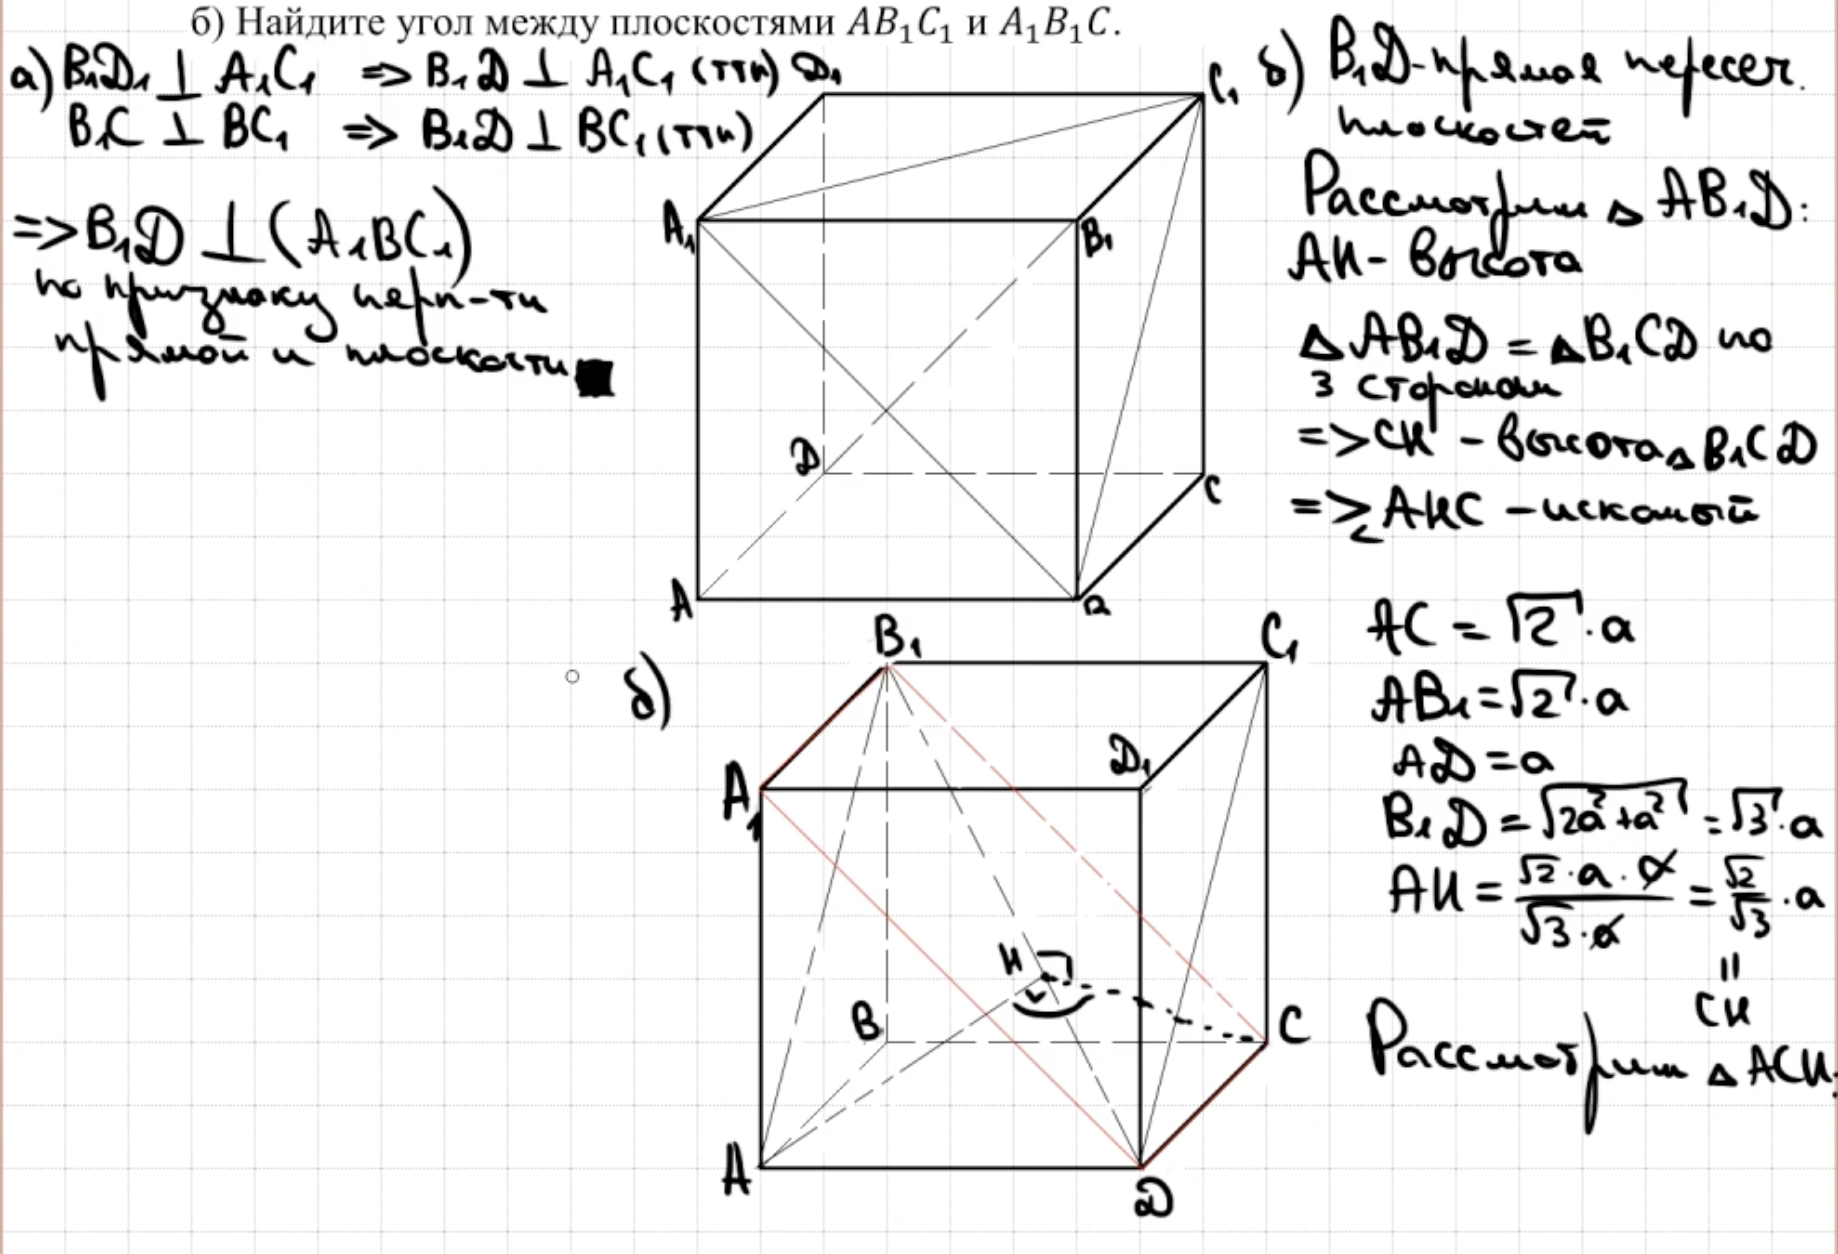 б) Найдите угол между плоскостями AB₁C₁ и A₁B₁C.
а) B₁D₁ ⊥ A₁C₁ => B₁D ⊥ A₁C₁ (ттп)
B₁C ⊥ BC₁ => B₁D ⊥ BC₁ (ттп)
=> B₁D ⊥ (A₁BC₁)
по признаку перп-ти
прямой и плоскости ■
D₁
C₁
A₁
B₁
D
C
A
B
б) B₁D - прямая пересеч.
плоскостей
Рассмотрим △ AB₁D:
AH - высота
△ AB₁D = △B₁CD по
3 сторонам
=> CH - высота △ B₁CD
=> ∠ AHC - искомый
AC = √2 · a
AB₁ = √2 · a
AD = a
B₁D = √(2a² + a²) = √3 · a
AH = (√2 · a · a) / (√3 · a) = √2/√3 · a
=
CH
Рассмотрим △ ACH:
б)
B₁
C₁
A₁
D₁
H
B
C
A
D